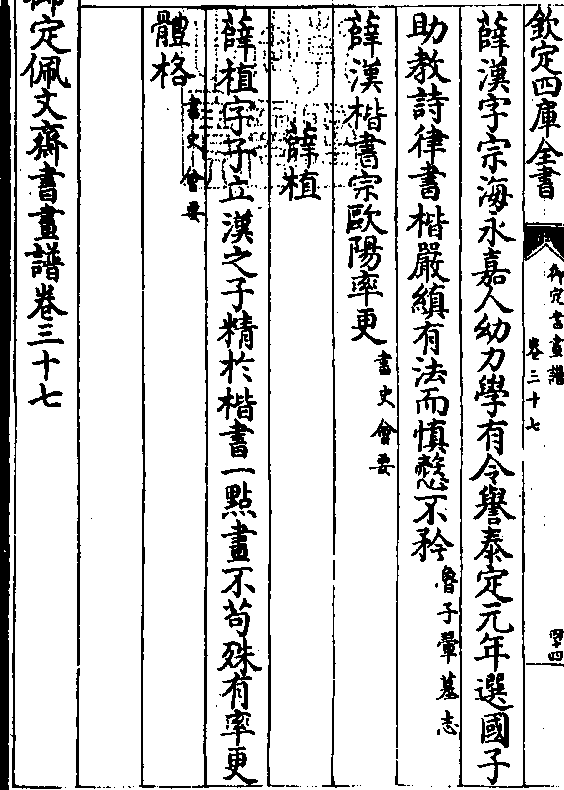 欽定四庫全書
御定書畫譜
卷三十七
四十四
薛漢字宗海永嘉人幼力學有令譽泰定元年選國子
助教詩律書楷嚴縝有法而慎愨不矜魯子翬墓志
薛漢楷書宗歐陽率更書史會要
薛植
薛植字子立漢之子精於楷書一點畫不苟殊有率更
體格書史會要
御定佩文齋書畫譜卷三十七